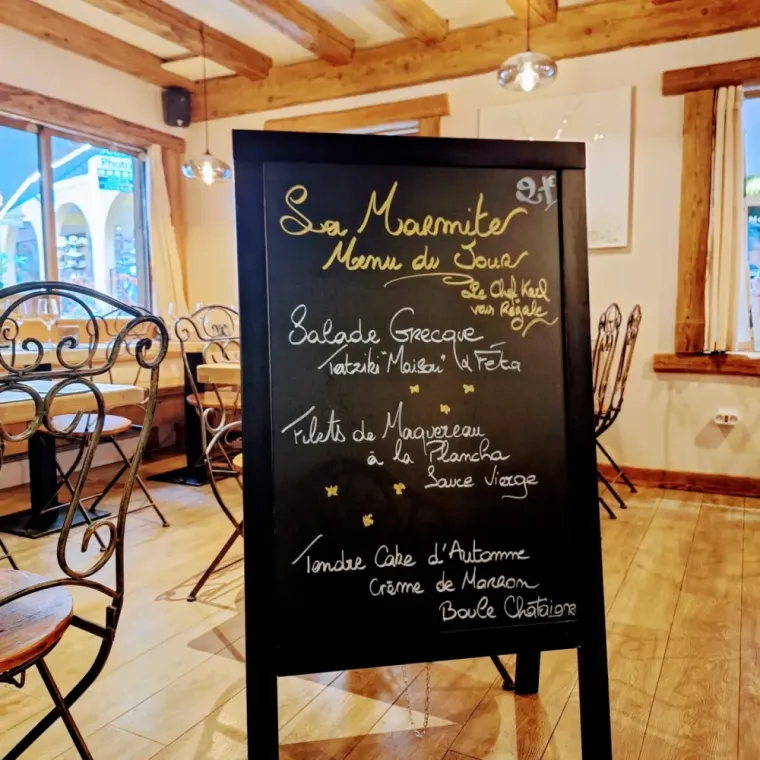 La Marmite
21€
Menu du Jour
Le Chef Karl
van Régale
Salade Grecque
Tzatziki "Maison" & Féta
Filets de Maquereau
à la Plancha
Sauce Vierge
Tendre Cake d'Automne
Crème de Marron
Boule Châtaigne
Photo